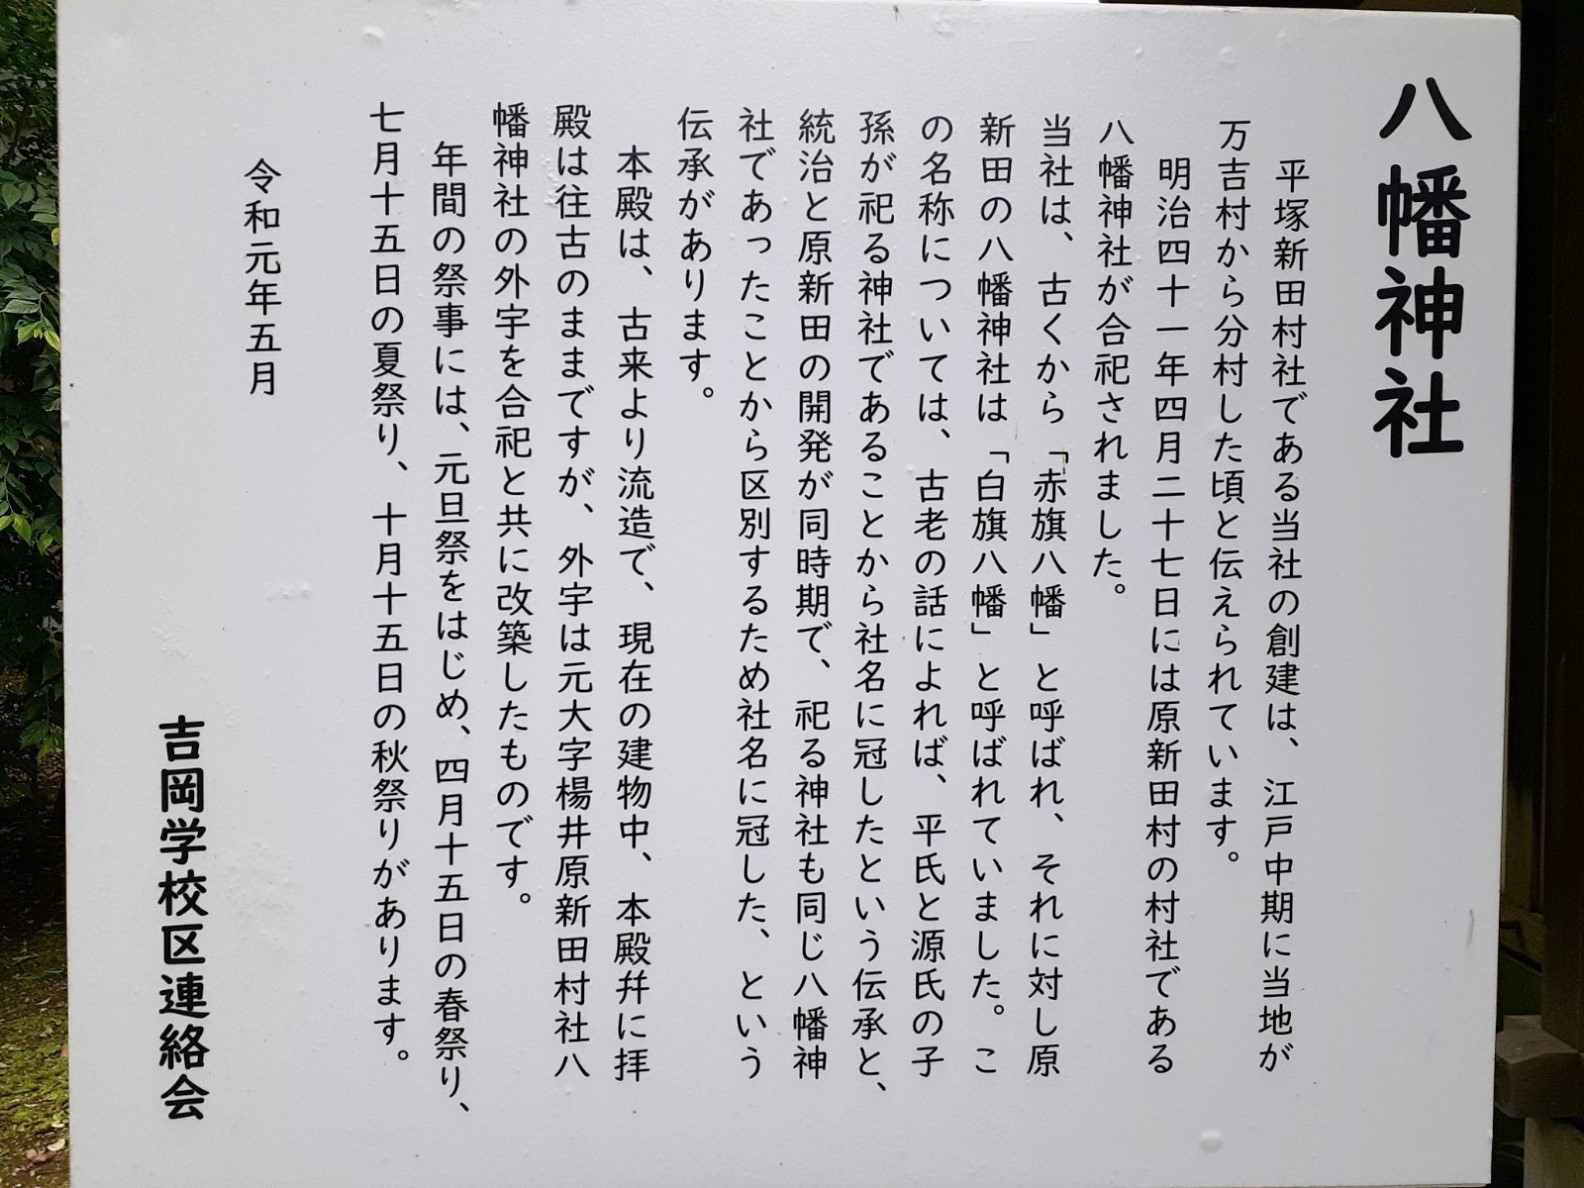 八幡神社
平塚新田村社である当社の創建は、江戸中期に当地が
万吉村から分村した頃と伝えられています。
明治四十一年四月二十七日には原新田村の村社である
八幡神社が合祀されました。
当社は、古くから「赤旗八幡」と呼ばれ、それに対し原
新田の八幡神社は「白旗八幡」と呼ばれていました。こ
の名称については、古老の話によれば、平氏と源氏の子
孫が祀る神社であることから社名に冠したという伝承と、
統治と原新田の開発が同時期で、祀る神社も同じ八幡神
社であったことから区別するため社名に冠した、という
伝承があります。
本殿は、古来より流造で、現在の建物中、本殿幷に拝
殿は往古のままですが、外宇は元大字楊井原新田村社八
幡神社の外宇を合祀と共に改築したものです。
年間の祭事には、元旦祭をはじめ、四月十五日の春祭り、
七月十五日の夏祭り、十月十五日の秋祭りがあります。
令和元年五月
吉岡学校区連絡会